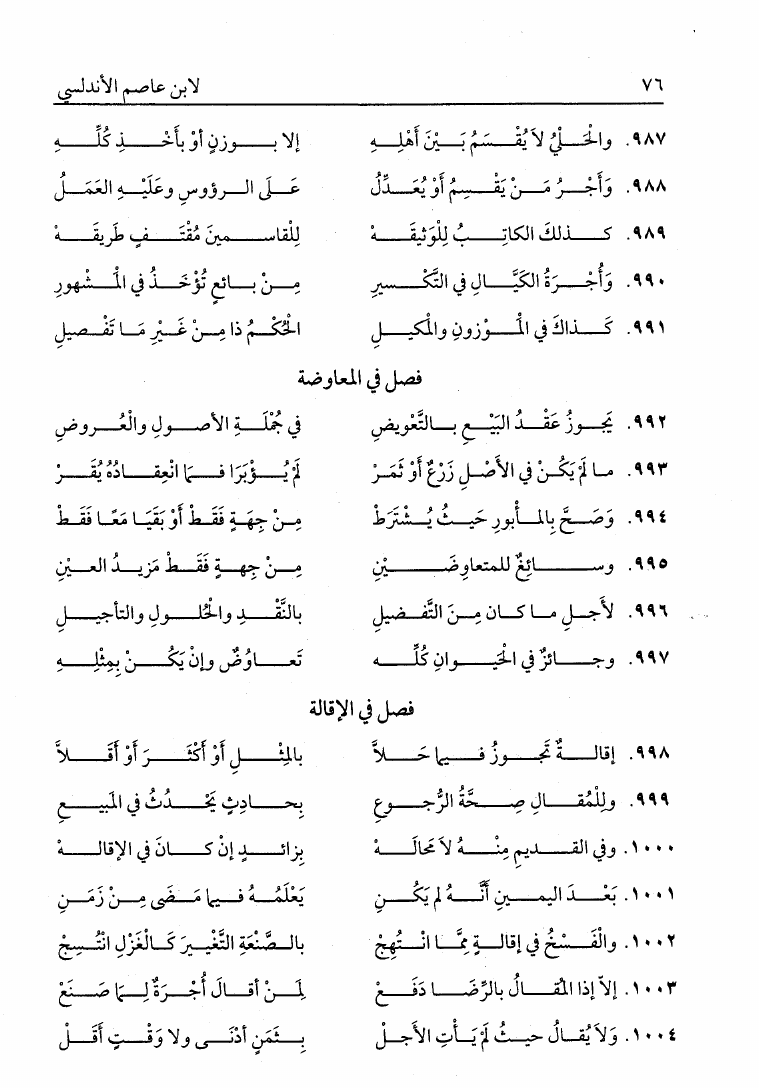 ٧٦ لابن عاصم الأندلسي
٩٨٧. والحَلْيُ لاَ يُقْسَمُ بَيْنَ أَهْلِهِ إلا بِوزنٍ أوْ بأَخْذِ كُلِّهِ
٩٨٨. وَأَجْرُ مَنْ يَقْسِمُ أوْ يُعَدِّلُ عَلَى الرؤوسِ وعَلَيْهِ العَمَلُ
٩٨٩. كذلكَ الكاتِبُ لِلْوَثيقَهْ لِلْقاسمينَ مُقْتَفٍ طَريقَهْ
٩٩٠. وَأُجْرَةُ الكَيَّالِ في التَّكْسيرِ مِنْ بائعٍ تُؤْخَذُ في الْمَشْهورِ
٩٩١. كَذَاكَ في الْمَوْزونِ والْمَكيلِ الحُكْمُ ذا مِنْ غَيْرِ مَا تَفْصيلِ
فصل في المعاوضة
٩٩٢. يَجوزُ عَقْدُ البَيْعِ بالتَّعْويضِ في جُمْلَةِ الأصولِ والْعُروضِ
٩٩٣. ما لمْ يَكُنْ في الأصْلِ زَرْعٌ أوْ ثَمَرْ لمْ يُؤْبَرَا فَما انْعِقادُهُ يُقَرْ
٩٩٤. وَصَحَّ بِالمأبورِ حَيثُ يُشْتَرَطْ مِنْ جِهَةٍ فَقَطْ أوْ بَقَيَا مَعًا فَقَطْ
٩٩٥. وسائِغٌ للمتعاوِضَيْنِ مِنْ جِهةٍ فَقَطْ مَزيدُ العينِ
٩٩٦. لأجلِ ما كان مِنَ التَّفْضيلِ بالنَّقْدِ والْحُلولِ والتأجيلِ
٩٩٧. وجائزٌ في الحَيوانِ كُلِّه تَعاوُضٌ وإنْ يَكُنْ بِمِثْلِهِ
فصل في الإقالة
٩٩٨. إقالةٌ تَجوزُ فيما حَلاَّ بالمِثْلِ أوْ أكْثَرَ أوْ أقَلاَّ
٩٩٩. ولِلْمُقالِ صِحَّةُ الرُّجوعِ بِحادِثٍ يَحْدُثُ في المَبيعِ
١٠٠٠. وفي القديمِ مِنْهُ لاَ مَحالَهْ بِزائدٍ إنْ كانَ في الإقالهْ
١٠٠١. بَعْدَ اليمينِ أنَّهُ لمْ يَكُنِ يَعْلَمُهُ فيما مَضَى مِنْ زَمَنِ
١٠٠٢. والْفَسْخُ في إقالةٍ مِمَّا انْتُهِجْ بالصَّنْعَةِ التَّغْييرَ كَالْغَزْلِ انْتُسِجْ
١٠٠٣. إلاّ إذا الْمُقالُ بالرِّضَا دَفَعْ لِمَنْ أقالَ أُجْرَةً لِمَا صَنَعْ
١٠٠٤. وَلاَ يُقالُ حيثُ لمْ يَأْتِ الأجلْ بِثَمَنٍ أدْنَى ولا وَقْتٍ أقَلّ